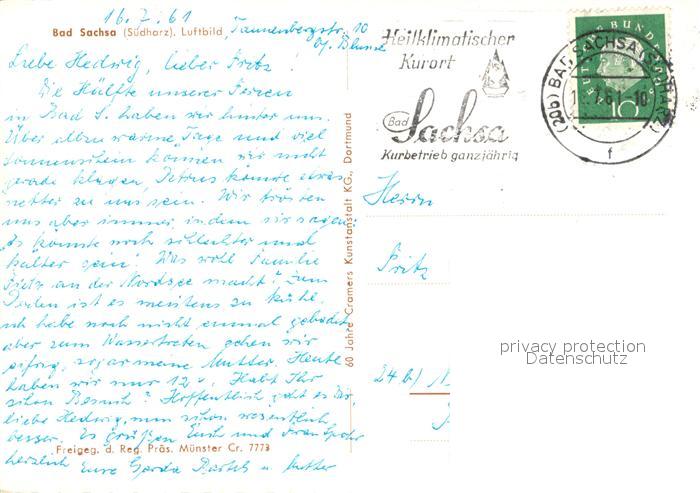 16.7.61
Bad Sachsa (Südharz). Luftbild
Tannenbergstr. 10
b/ Blume
Liebe Hedwig, lieber Fritz!
Die Hälfte unserer Ferien
in Bad S. haben wir hinter uns.
Über allzu warme Tage und viel
Sonnenschein können wir nicht
gerade klagen, Petrus könnte etwas
netter zu uns sein. Wir trösten
uns aber immer, indem wir sagen:
"Es könnte noch schlechter und
kälter sein". Was wohl Familie
an der Nordsee macht? Zum
Baden ist es meistens zu kühl.
Ich habe noch nicht einmal gebadet
aber zum Wassertreten gehen wir
eifrig, sogar meine Mutter. Heute
haben wir nur 12°. Habt Ihr
schon Besuch? Hoffentlich geht es Dir
liebe Hedwig, nun schon wesentlich
besser. Es grüßen Euch und
herzlich Eure Gerda u. Mutter
Freigeg. d. Reg. Präs. Münster Cr. 7773
60 Jahre Cramers Kunstanstalt KG., Dortmund
Heilklimatischer
Kurort
Bad
Sachsa
Kurbetrieb ganzjährig
(20b) BAD SACHSA (SÜDHARZ)
.7.61-10
f
DEUTSCHE BUNDESPOST
10
Herrn
Fritz
24b/
privacy protection
Datenschutz